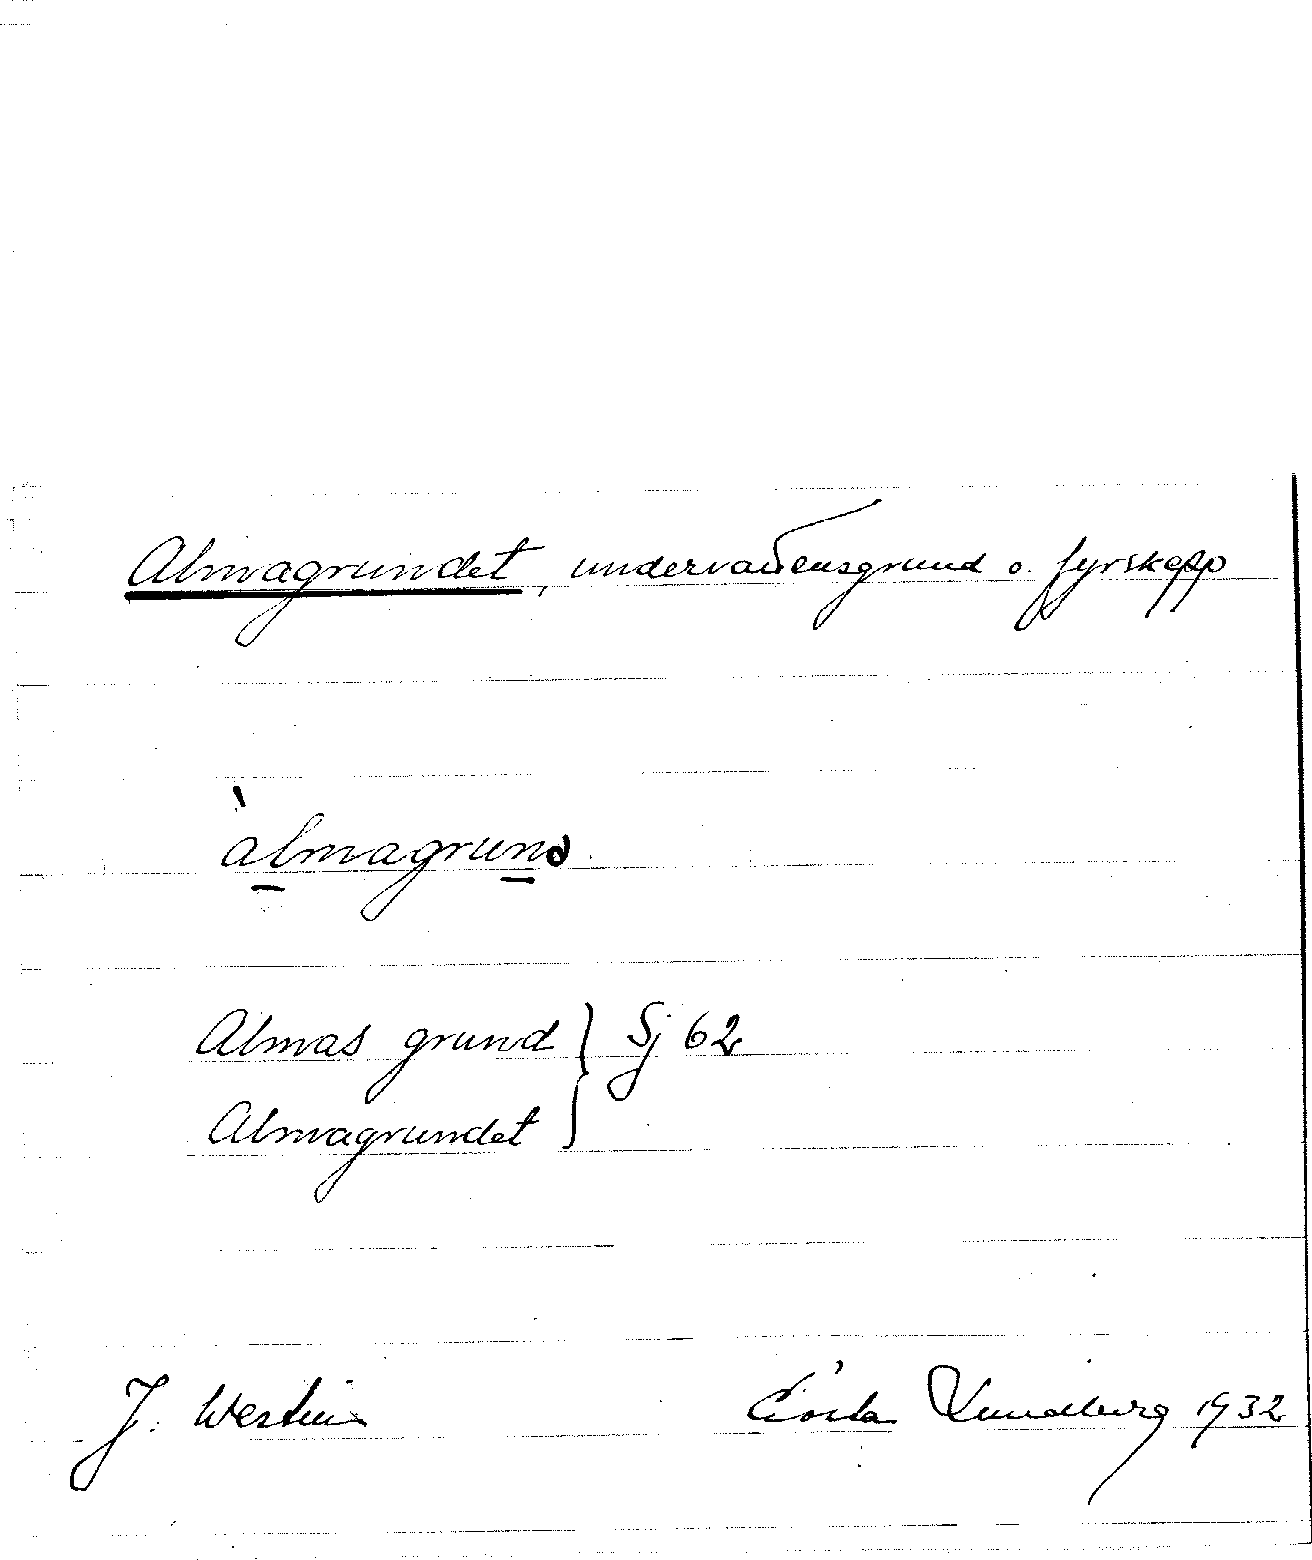 Almagrundet, undervattensgrund o. fyrskepp
àlmagrund
Almas grund } Sj 62
Almagrundet
J. Westin Gösta Lundberg 1932